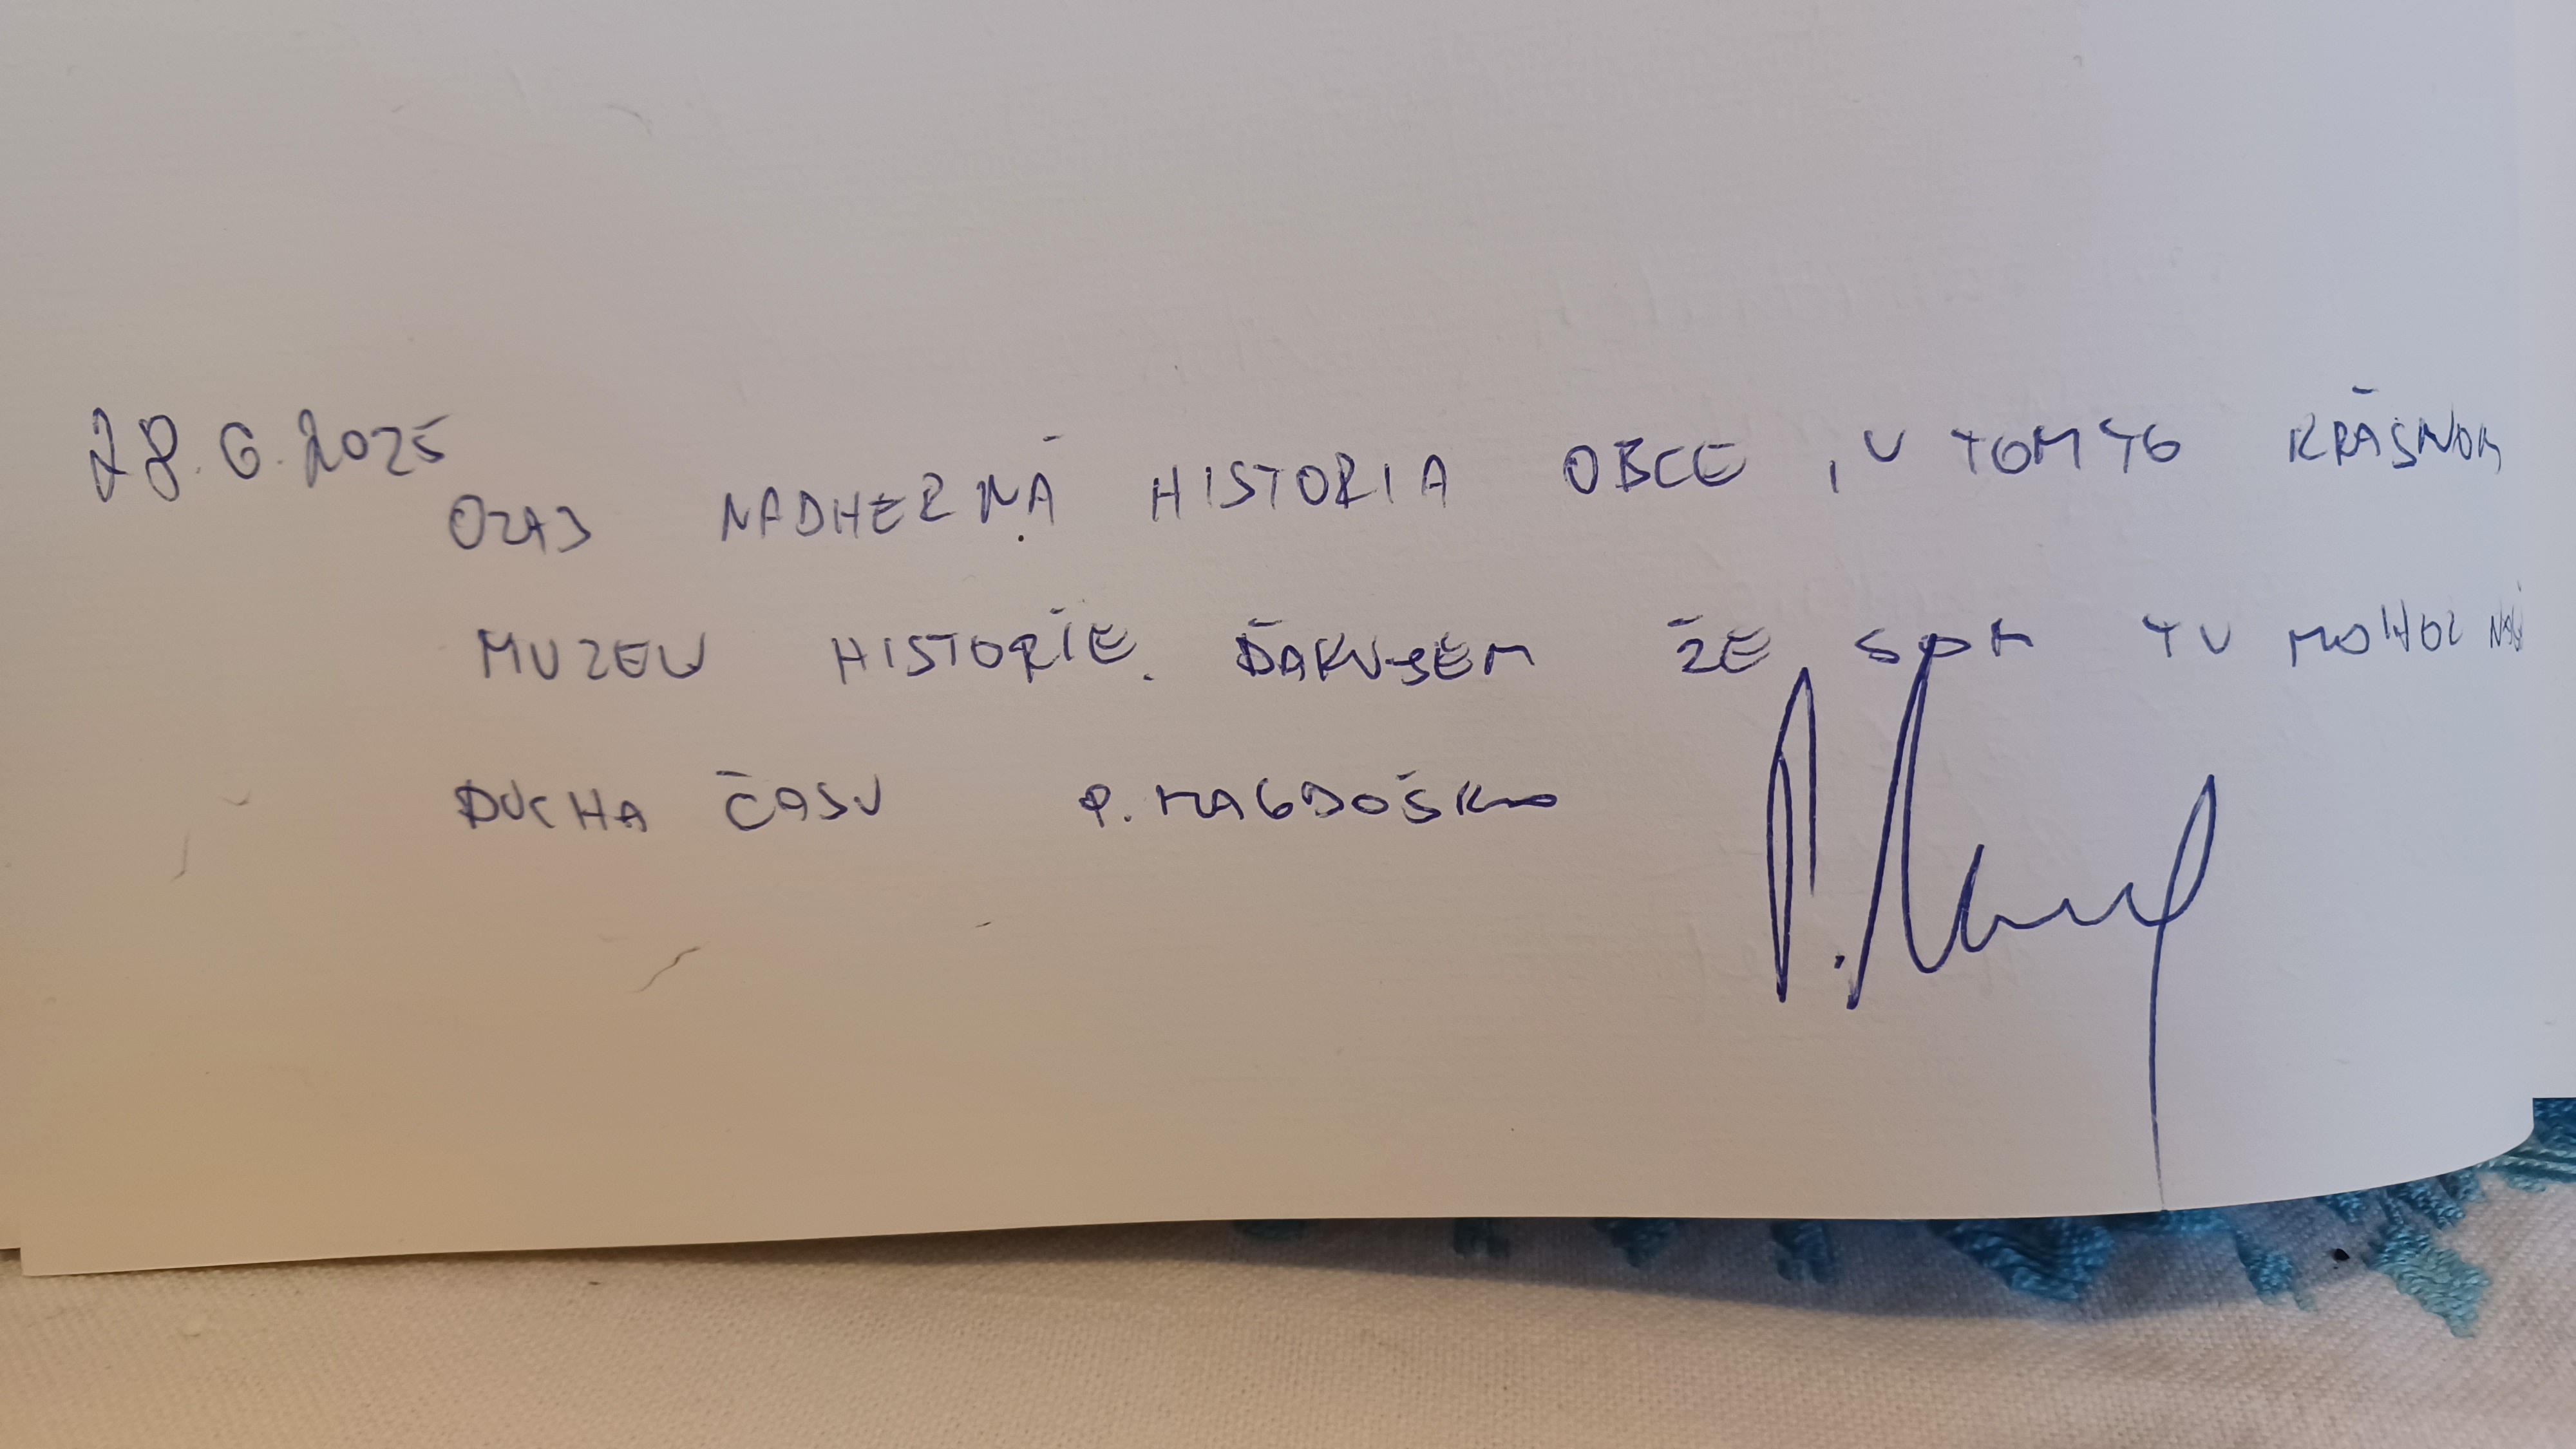 28.6.2025
OZAJ NADHERNÁ HISTORIA OBCE, V TOMTO KRÁSNOM
MUZEU HISTÓRIE. ĎAKUJEM ŽE SOM TU MOHOL
DUCHA ČASU P. MAGDOŠKO